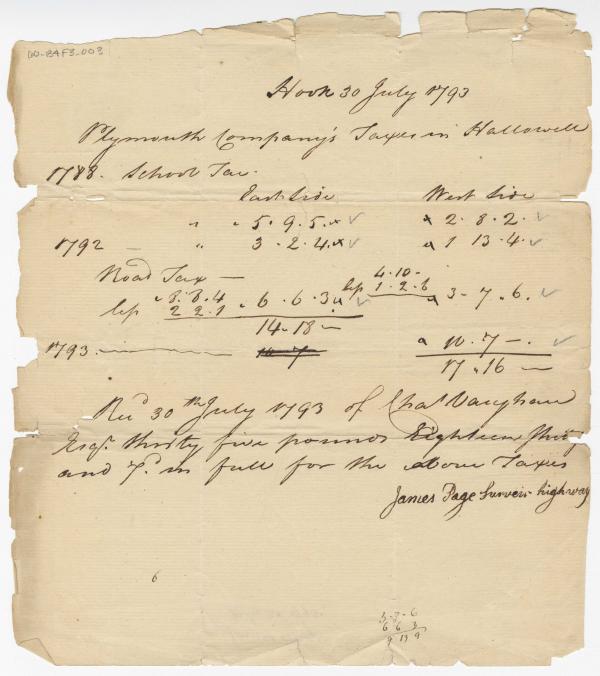 W-BAF3-003
Hook 30 July 1793
Plymouth Company's Taxes in Hallowell
1788. School Tax.
East Side West Side
" " 5. 9. 5. 2. 8. 2.
1792 — " 3. 2. 4. 1 13. 4.
Road Tax — 4. 10 –
8. 8. 4 6. 6. 3 1. 2. 6 3. 7. 6.
2 2. 1
14. 18 —
1793. 10. 7 10. 7 —.
17. 16 —
Recd 30th July 1793 of Chas Vaughan
Esqr. thirty five pounds Eighteen
and 7d. in full for the above Taxes
James Page Surveir highway
6
3. 7. 6
6 6 3
9 13 9